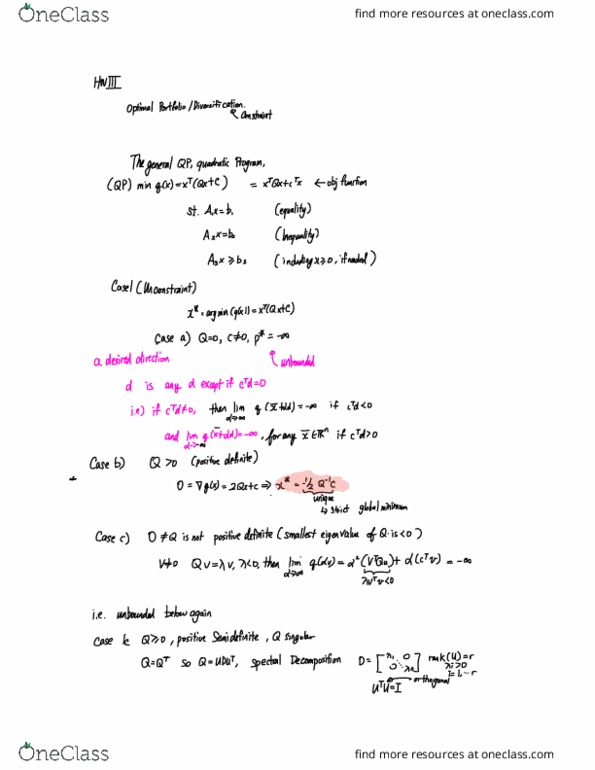 OneClass
find more resources at oneclass.com
HW III
Optimal Portfolio / Diversification.
Constraint
The general QP, quadratic Program,
(QP) min q(x)=xᵀ(Qx+C) = xᵀQx+cᵀx ← obj function
st. A₁x=b₁ (equality)
A₂x=b₂ (Inequality)
A₃x≥b₃ (including x≥0, if needed)
Case1 (Unconstraint)
x*=argmin(q(x))=xᵀ(Qx+C)
Case a) Q=0, C≠0, p*=-∞
a desired direction
unbounded
d is any d except if cᵀd=0
i.e) if cᵀd≠0, then lim q(x̄+αd)=-∞ if cᵀd<0
α→∞
and lim q(x̄+αd)=-∞, for any x̄∈ℝⁿ if cᵀd>0
α→-∞
Case b) Q>0 (positive definite)
0=∇q(x)=2Qx+c ⇒ x*=-½Q⁻¹C
unique
↳ strict global minimum
Case c) 0≠Q is not positive definite (smallest eigenvalue of Q is <0)
V≠0 Qv=λv, λ<0, then lim q(αv)=α²(VᵀQv)+α(cᵀv)=-∞
α→∞
λVᵀV<0
i.e. unbounded below again
Case k: Q≥0, positive Semidefinite, Q singular
Q=Qᵀ so Q=UDUᵀ, spectral Decomposition D=[λ₁ 0 rank(U)=r
0 λᵣ] λᵢ>0
i=1,…r
orthogonal
UᵀU=I
OneClass
find more resources at oneclass.com